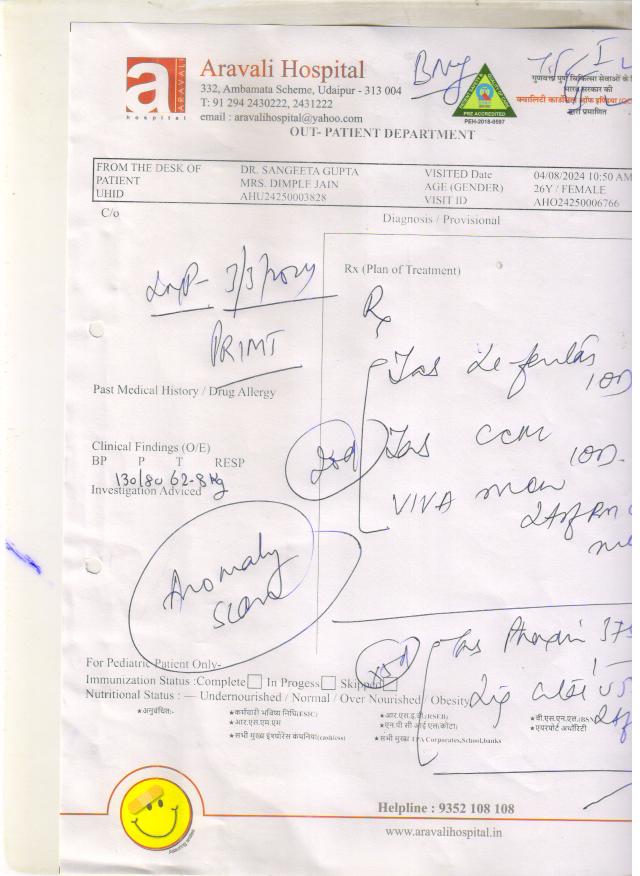 a
ARAVALI
hospital
Aravali Hospital
332, Ambamata Scheme, Udaipur - 313 004
T: 91 294 2430222, 2431222
email : aravalihospital@yahoo.com
OUT- PATIENT DEPARTMENT
PRE ACCREDITED
PEH-2018-0597
गुणवत्ता पूर्ण चिकित्सा सेवाओं के
भारत सरकार की
द्वारा प्रमाणित
FROM THE DESK OF DR. SANGEETA GUPTA VISITED Date 04/08/2024 10:50 AM
PATIENT MRS. DIMPLE JAIN AGE (GENDER) 26Y / FEMALE
UHID AHU24250003828 VISIT ID AHO24250006766
C/o
Diagnosis / Provisional
Rx (Plan of Treatment)
LMP- 3/3/2024
Rx
PRIMI
Past Medical History / Drug Allergy
10D
Clinical Findings (O/E)
BP P T RESP
130/80 62-8 Kg
Investigation Adviced
Tas CCM
10D.
VIVA
Anomaly
Scan
Tas 375
x5d
For Pediatric Patient Only-
Immunization Status :Complete In Progess Skipped
Nutritional Status : — Undernourished / Normal / Over Nourished / Obesity
★अनुबंधित:- ★कर्मचारी भविष्य निधि(ESIC) ★आर.एस.ई.बी.(RSEB) ★बी.एस.एन.एल.(BSN
★आर.एस.एम.एम ★एन.पी.सी.आई.एल(कोटा) ★एयरपोर्ट अथॉरिटी
★सभी मुख्य इंश्योरेंस कंपनियां(cashless) ★सभी मुख्य TPA Corporates,School,banks
Helpline : 9352 108 108
www.aravalihospital.in